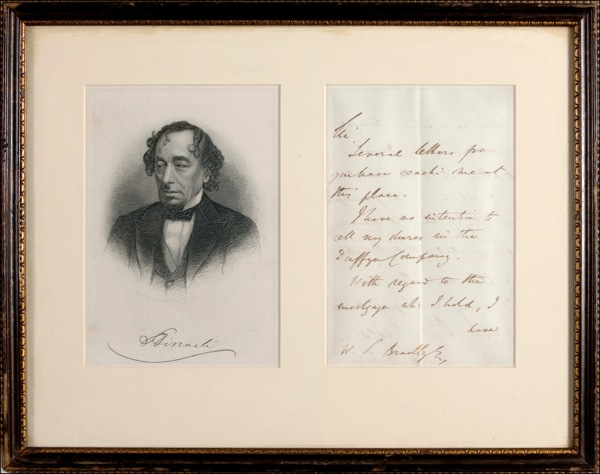 Disraeli
Sir
Several letters
have reached me at
this place.
I have no intention to
sell my shares in the
Company.
With regard to the
mortgage wh: I hold, I
have
W. S. Bradley Esq